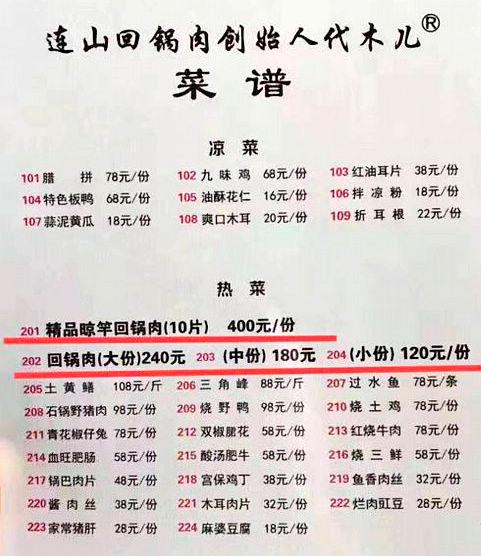 连山回锅肉创始人代木儿®
菜谱
凉菜
101腊 拼 78元/份 102九味鸡 68元/份 103红油耳片 38元/份
104特色板鸭 68元/份 105油酥花仁 16元/份 106拌凉粉 18元/份
107蒜泥黄瓜 18元/份 108爽口木耳 20元/份 109折耳根 22元/份
热菜
201 精品晾竿回锅肉(10片) 400元/份
202 回锅肉(大份)240元 203 (中份) 180元 204 (小份) 120元/份
205土黄鳝 108元/斤 206三角峰 88元/斤 207过水鱼 78元/条
208石锅野猪肉 98元/份 209烧野鸭 98元/份 210烧土鸡 78元/份
211青花椒仔兔 78元/份 212双椒腒花 58元/份 213红烧牛肉 78元/份
214血旺肥肠 58元/份 215酸汤肥牛 58元/份 216烧三鲜 58元/份
217锅巴肉片 48元/份 218宫保鸡丁 38元/份 219鱼香肉丝 32元/份
220酱肉丝 38元/份 221木耳肉片 32元/份 222烂肉豇豆 28元/份
223家常猪肝 28元/份 224麻婆豆腐 18元/份